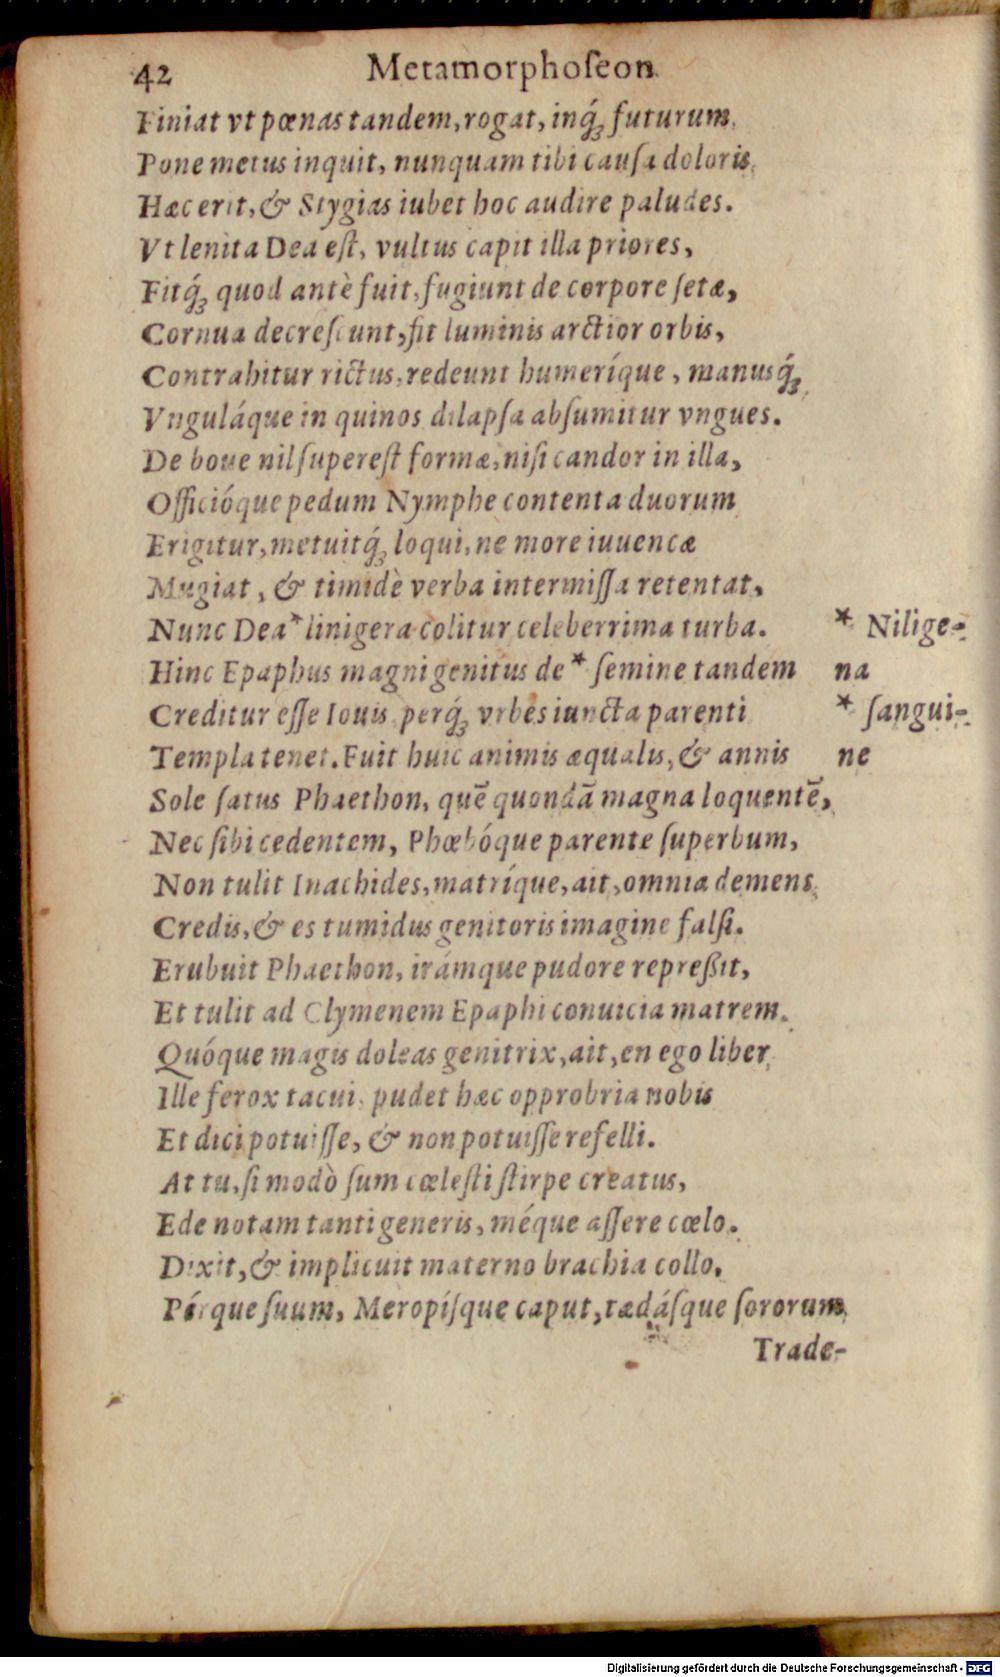 42 Metamorphoſeon.
Finiat vt pœnas tandem, rogat, inq́ꝫ futurum,
Pone metus inquit, nunquam tibi cauſa doloris,
Hæc erit, & Stygias iubet hoc audire paludes.
Vt lenita Dea eſt, vultus capit illa priores,
Fitq́ꝫ quod antè fuit, fugiunt de corpore ſetæ,
Cornua decreſcunt, fit luminis arctior orbis,
Contrahitur rictus, redeunt humeríque, manusq́ꝫ,
Vnguláque in quinos dilapſa abſumitur vngues.
De boue nil ſupereſt formæ, niſi candor in illa,
Officióque pedum Nymphe contenta duorum
Erigitur, metuitq́ꝫ loqui, ne more iuuencæ
Mugiat, & timidè verba intermiſſa retentat,
Nunc Dea * linigera colitur celeberrima turba. * Nilige-
Hinc Epaphus magni genitus de * ſemine tandem na
Creditur eſſe Iouis, perq́ꝫ vrbes iuncta parenti * ſangui-
Templa tenet. Fuit huic animis æqualis, & annis ne
Sole ſatus Phaethon, quē quondā magna loquentē,
Nec ſibi cedentem, Phœbóque parente ſuperbum,
Non tulit Inachides, matríque, ait, omnia demens
Credis, & es tumidus genitoris imagine falſi.
Erubuit Phaethon, irámque pudore repreßit,
Et tulit ad Clymenem Epaphi conuicia matrem.
Quóque magis doleas genitrix, ait, en ego liber,
Ille ferox tacui, pudet hæc opprobria nobis
Et dici potuiſſe, & non potuiſſe refelli.
At tu, ſi modò ſum cœleſti ſtirpe creatus,
Ede notam tanti generis, méque aſſere cœlo.
Dixit, & implicuit materno brachia collo,
Pérque ſuum, Meropíſque caput, tædáſque ſororum,
Trade-
Digitalisierung gefördert durch die Deutsche Forschungsgemeinschaft - DFG